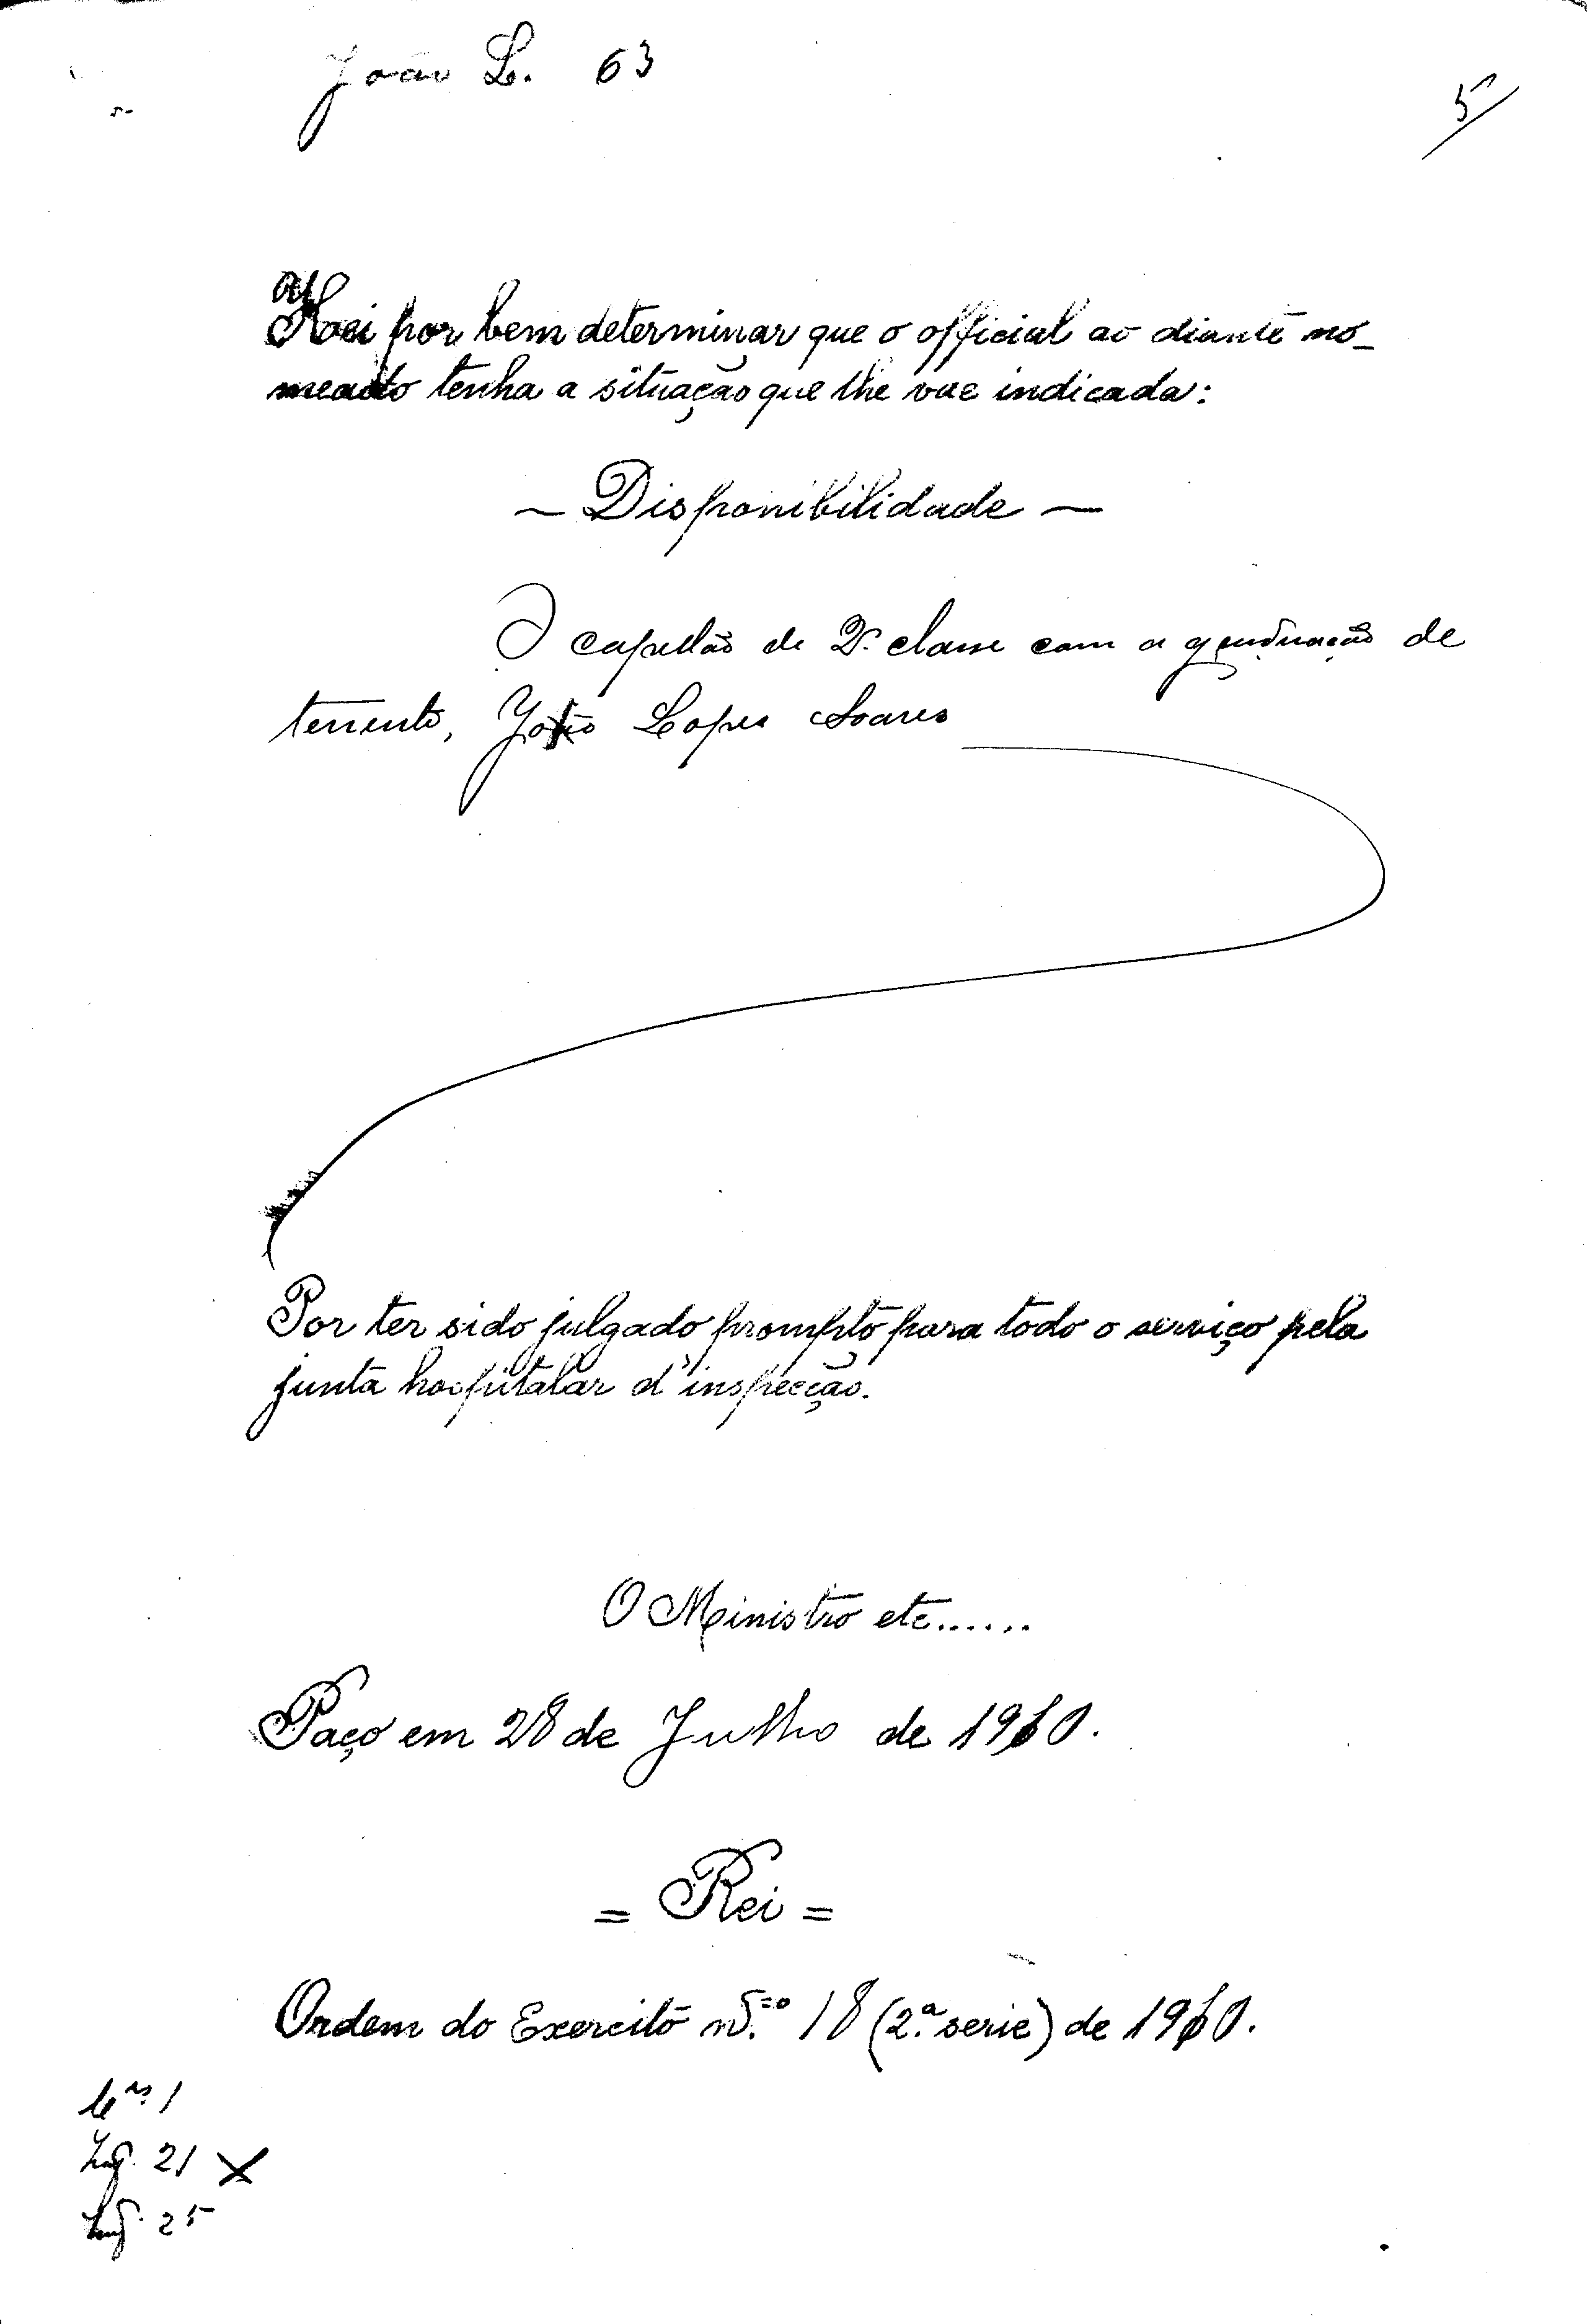 João L. 63
5
Hei por bem determinar que o official ao diante no_
meado tenha a situação que lhe vae indicada:
~ Disponibilidade ~
O capellão de 2ª classe com a graduação de
tenente, João Lopes Soares
Por ter sido julgado prompto para todo o serviço pela
junta hospitalar d'inspecção.
O Ministro etc......
Paço em 28 de Julho de 1910.
= Rei =
Ordem do Exercito n.º 18 (2.ª serie) de 1910.
1
21 X
25